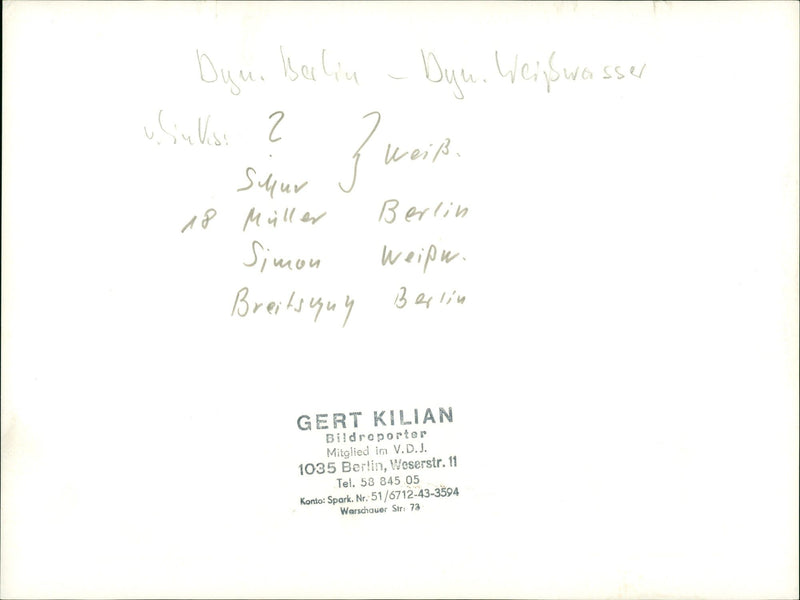 Dyn. Berlin – Dyn. Weißwasser
v. links: ? } Weiß.
Schur
18 Müller Berlin
Simon Weißw.
Breitschuh Berlin
GERT KILIAN
Bildreporter
Mitglied im V.D.J.
1035 Berlin, Weserstr. 11
Tel. 58 845 05
Konto: Spark. Nr. 51/6712-43-3594
Warschauer Str: 73